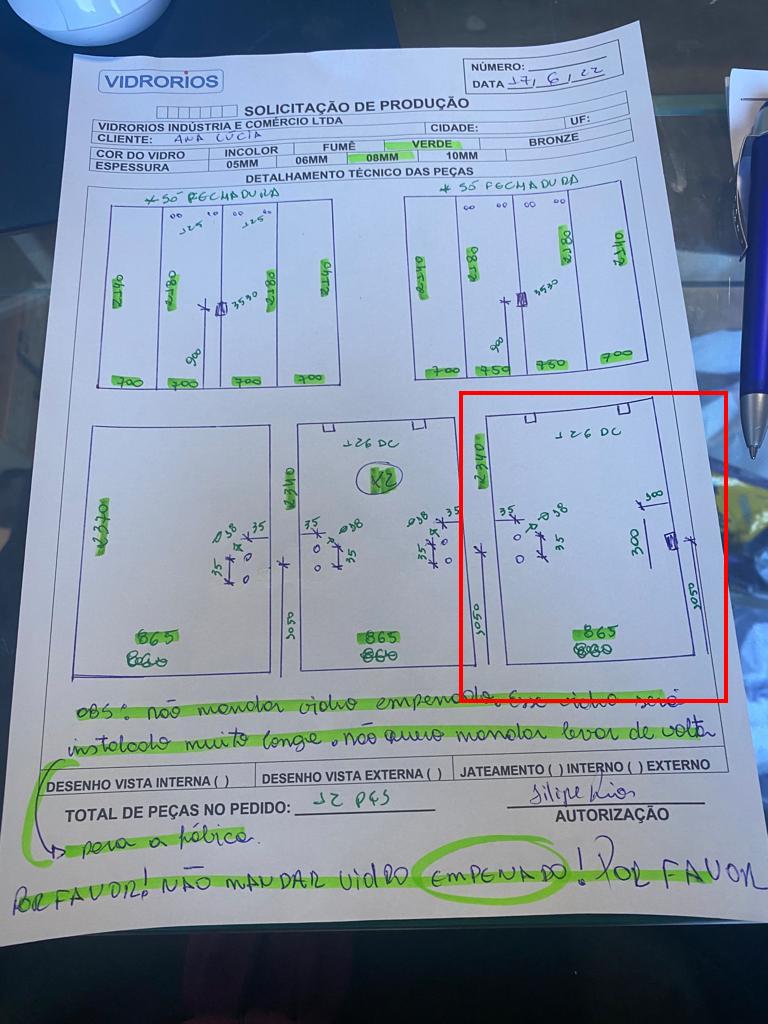 VIDRORIOS
NÚMERO:
DATA 17, 6, 22
SOLICITAÇÃO DE PRODUÇÃO
VIDRORIOS INDÚSTRIA E COMÉRCIO LTDA
CIDADE:
UF:
CLIENTE: ANA LUCIA
COR DO VIDRO INCOLOR FUMÊ VERDE BRONZE
ESPESSURA 05MM 06MM 08MM 10MM
DETALHAMENTO TÉCNICO DAS PEÇAS
* SÓ FECHADURA
* SÓ FECHADURA
125 125
2140 2180 2180 2140
3530
900
700 700 700 700
2140 2180 2180 2140
3530
900
700 750 750 700
2370
Ø38 35
35
865
1050
126 DC
X2
2340
35 Ø38
35
Ø38 35
35
865
1050
126 DC
2340
35 Ø38
35
300
865
1050
OBS: não mandar vidro empenado. Esse vidro será
instalado muito longe. não quero mandar levar de volta
DESENHO VISTA INTERNA ( ) DESENHO VISTA EXTERNA ( ) JATEAMENTO ( ) INTERNO ( ) EXTERNO
TOTAL DE PEÇAS NO PEDIDO: 12 PÇS
Filipe Rios
AUTORIZAÇÃO
para a fábica.
POR FAVOR! NÃO MANDAR VIDRO EMPENADO! POR FAVOR